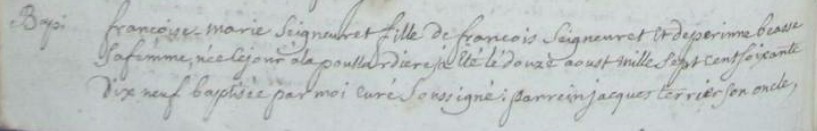 Bapt françoise marie Seigneuret fille de françois Seigneuret et de perinne beasse
Sa femme, née le jour à la poullardiere, a été le douze aoust mille sept cent soixante
Dix neuf baptisée par moi curé Soussigné: parrein jacques terrier son oncle,